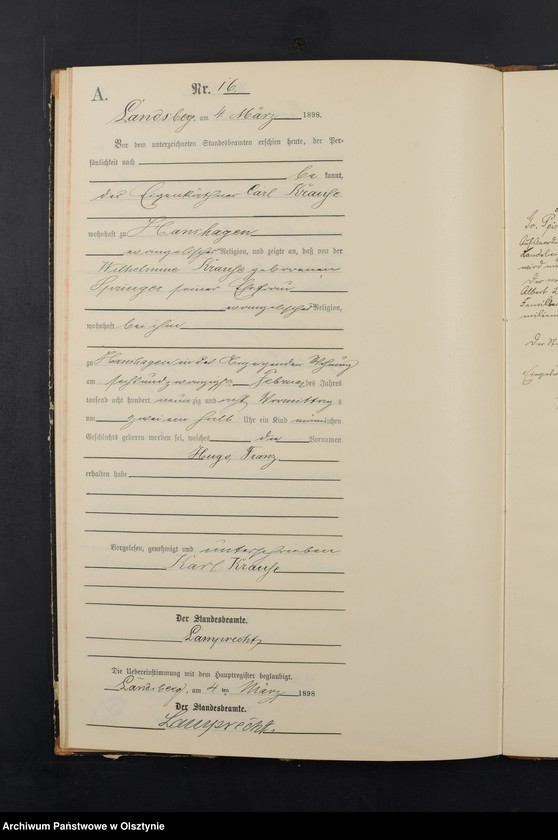 A.
Nr. 16
Landsberg, am 4. März 1898.
Vor dem unterzeichneten Standesbeamten erschien heute, der Per-
sönlichkeit nach
be kannt,
der Eigenkäthner Carl Krause
wohnhaft zu Hanshagen
evangelischer Religion, und zeigte an, daß von der
Wilhelmine Krause geborenen
Springer seiner Ehefrau
evangelischer Religion,
wohnhaft bei ihm
zu Hanshagen in des Wohnung
am sechsundzwanzigsten Februar des Jahres
tausend acht hundert neunzig und acht Vormittags
um zwei ein halb Uhr ein Kind männlichen
Geschlechts geboren worden sei, welches die Vornamen
Hugo, Franz
erhalten habe
Vorgelesen, genehmigt und unterschrieben
Karl Krause
Der Standesbeamte.
Lamprecht
Die Uebereinstimmung mit dem Hauptregister beglaubigt.
Landsberg, am 4 ten März 1898
Der Standesbeamte.
Lamprecht.
Archiwum Państwowe w Olsztynie